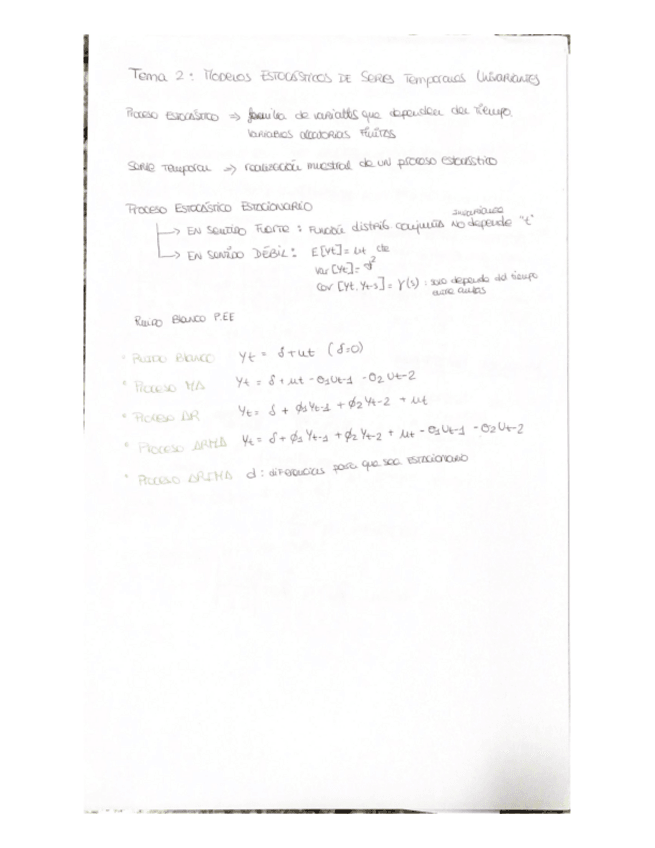 Tema 2: MODELOS ESTOCÁSTICOS DE SERIES TEMPORALES UNIVARIANTES
PROCESO ESTOCÁSTICO => familia de variables que dependen del tiempo.
VARIABLES aleatorias FINITAS
SERIE TEMPORAL => realización muestral de un proceso estocástico
PROCESO ESTOCÁSTICO ESTACIONARIO
-> EN SENTIDO FUERTE: FUNCIÓN distrib conjunta NO depende "t"
-> EN SENTIDO DÉBIL: E[Yt] = μ cte
var[Yt] = σ²
cov[Yt, Yt-s] = γ(s): solo depende del tiempo
entre ambas
RUIDO BLANCO P.EE
• RUIDO BLANCO Yt = δ + ut (δ=0)
• PROCESO MA Yt = δ + ut - θ1ut-1 - θ2ut-2
• PROCESO AR Yt = δ + ϕ1Yt-1 + ϕ2Yt-2 + ut
• PROCESO ARMA Yt = δ + ϕ1Yt-1 + ϕ2Yt-2 + ut - θ1ut-1 - θ2ut-2
• PROCESO ARIMA d: diferencias para que sea ESTACIONARIO